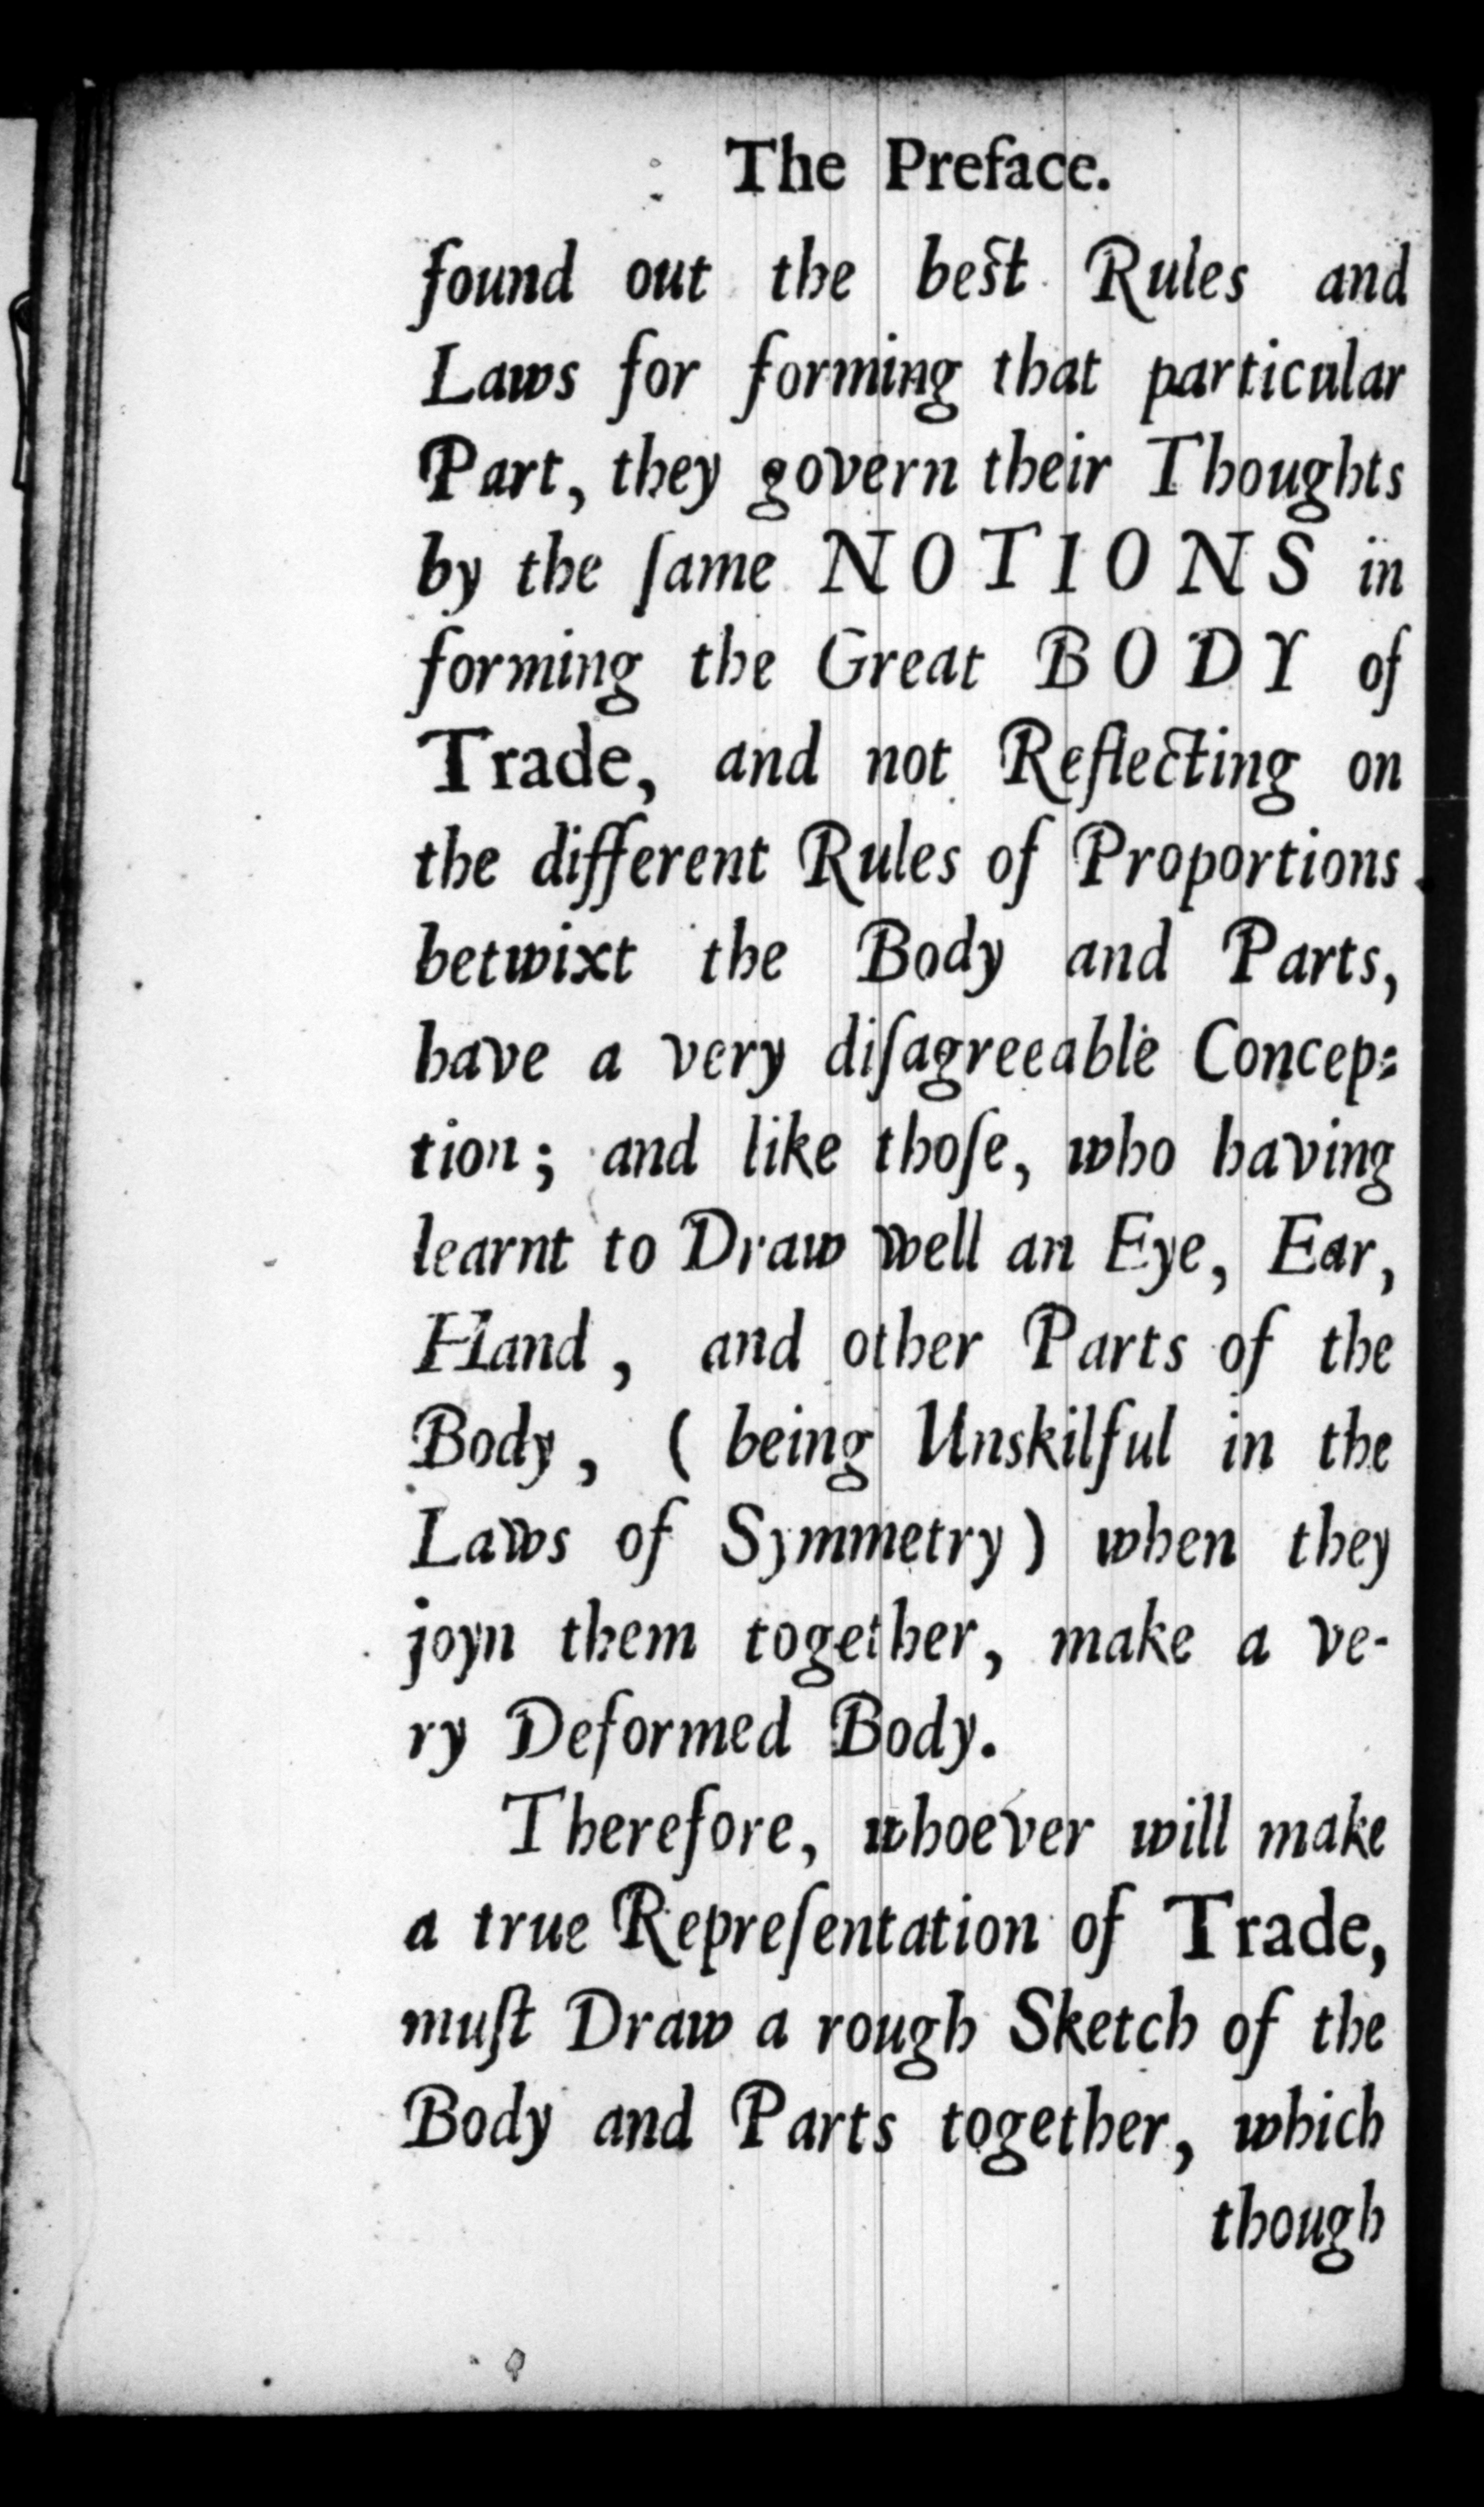 The Preface.
found out the best Rules and
Laws for forming that particular
Part, they govern their Thoughts
by the ſame NOTIONS in
forming the Great BODY of
Trade, and not Reflecting on
the different Rules of Proportions
betwixt the Body and Parts,
have a very diſagreeable Concep-
tion; and like thoſe, who having
learnt to Draw well an Eye, Ear,
Hand, and other Parts of the
Body, (being Unskilful in the
Laws of Symmetry) when they
joyn them together, make a ve-
ry Deformed Body.
Therefore, whoever will make
a true Repreſentation of Trade,
muſt Draw a rough Sketch of the
Body and Parts together, which
though